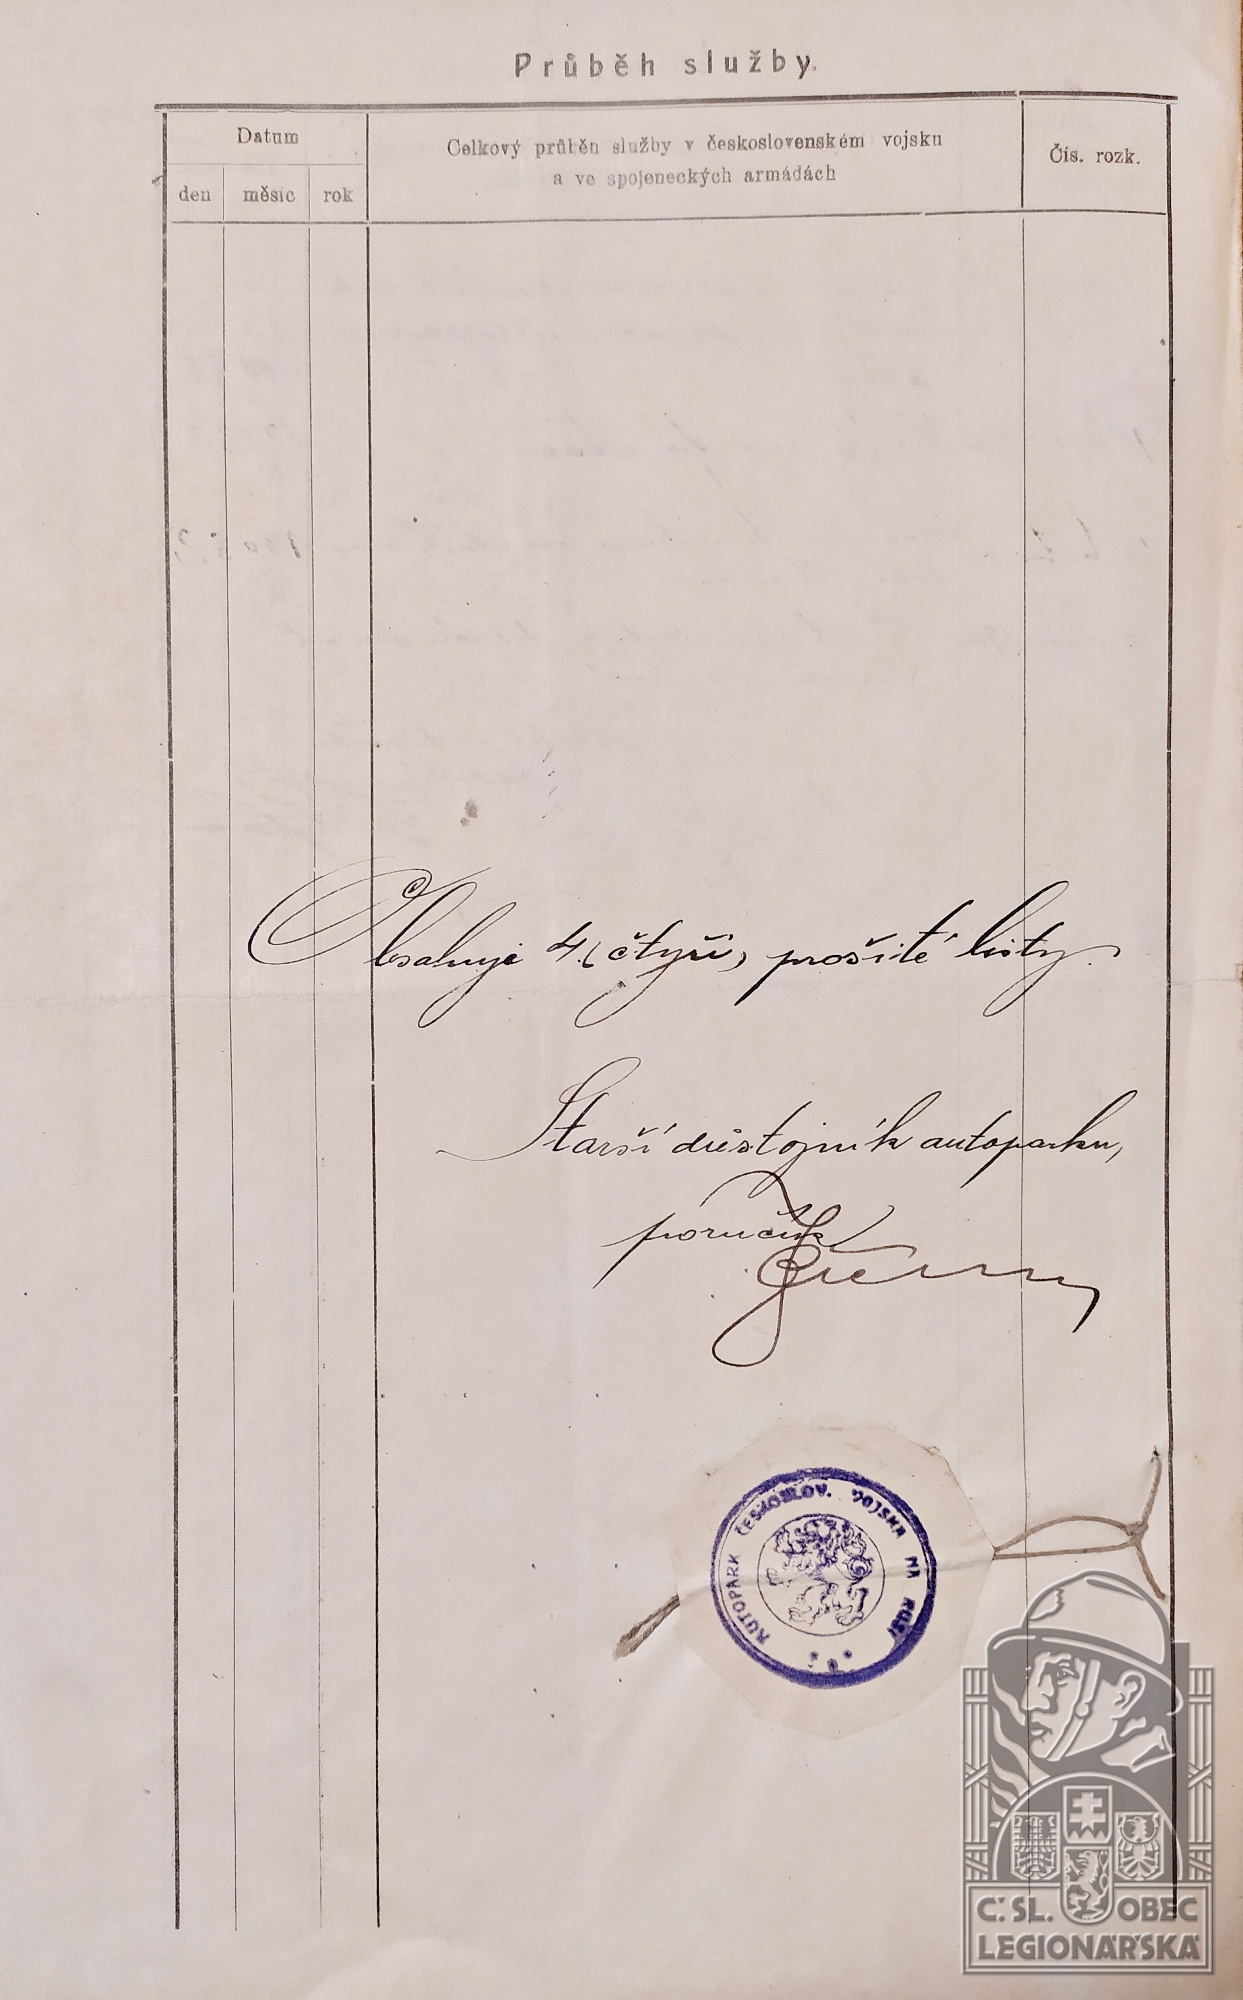 Průběh služby.
Datum
Celkový průběh služby v československém vojsku
a ve spojeneckých armádách
Čís. rozk.
den měsíc rok
Obsahuje 4 (čtyři) prošité listy.
Starší důstojník autoparku,
poručík
AUTOPARK ČESKOSLOV. VOJSKA NA RUSI
Č. SL. OBEC
LEGIONÁŘSKÁ